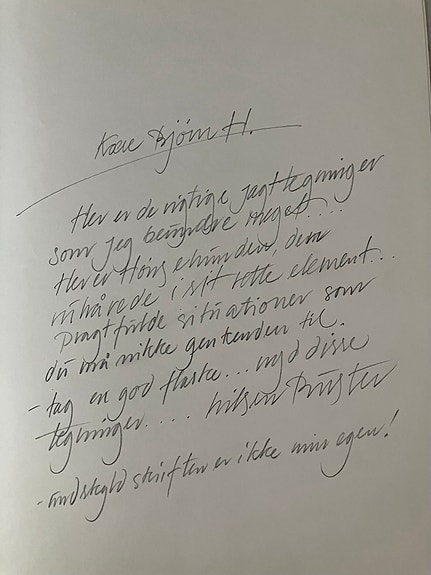 Kære Bjørn H.
Her er de rigtige jagttegninger
som jeg beundre meget....
Her er Hønsehunden, den
ruhårede i sit rette element...
Pragtfulde situationer som
du må nikke genkenden til.
- tag en god flaske... nyd disse
tegninger..... hilsen
- undskyld skriften er ikke min egen!